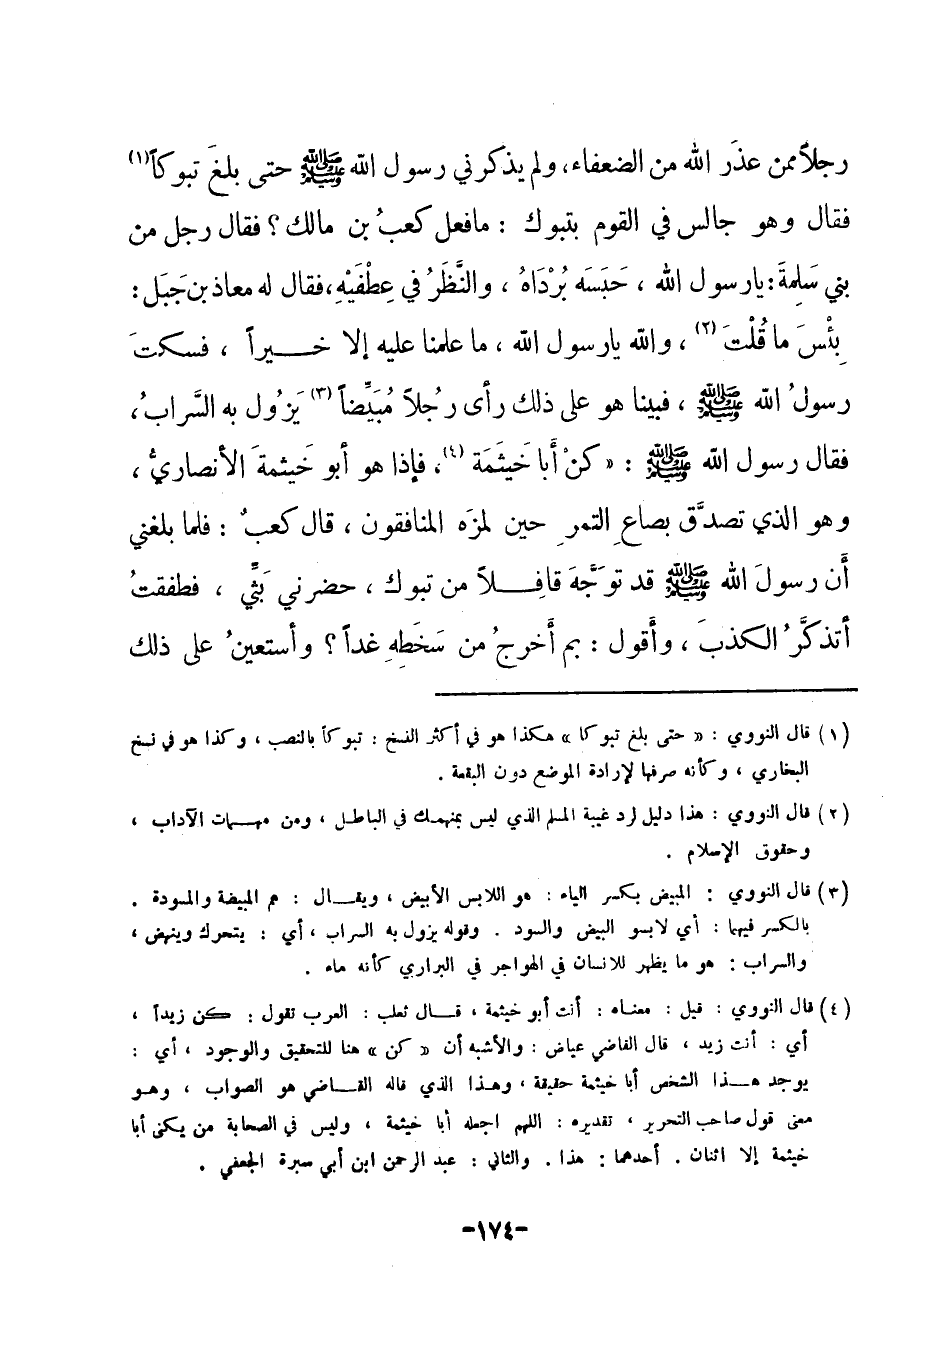 رجلاً ممن عذَر الله من الضعفاء، ولم يذكرني رسول الله ﷺ حتى بلغَ تبوكاً (١)
فقال وهو جالس في القوم بتبوك : مافعل كعبُ بن مالك ؟ فقال رجل من
بني سَلِمةَ : يارسول الله ، حَبَسَه بُرْدَاهُ ، والنَّظَرُ في عِطْفَيْهِ، فقال له معاذ بن جَبَل :
بِئْسَ ما قُلْتَ (٢) ، والله يارسول الله ، ما علمنا عليه إلا خـــيراً ، فسكتَ
رسولُ الله ﷺ ، فبينا هو على ذلك رأى رجُلاً مُبَيِّضاً (٣) يَزُول به السَّرابُ ،
فقال رسول الله ﷺ : « كنْ أَبا خَيثَمَة (٤) ، فإذا هو أبو خَيثمةَ الأنصاريُّ ،
وهو الذي تصدَّق بصاعِ التمرِ حين لمزَه المنافقون ، قال كعبٌ : فلما بلغني
أَن رسولَ الله ﷺ قد توَجَّهَ قافِـــلاً من تبوك ، حضرني بَثِّي ، فطفقتُ
أتذكَّرُ الكذبَ ، وأقول : بم أخرجُ من سَخَطِهِ غداً ؟ وأستعينُ على ذلك
(١) قال النووي : « حتى بلغ تبوكا » هكذا هو في أكثر النسخ : تبوكاً بالنصب ، وكذا هو في نسخ
البخاري ، وكأنه صرفها لإرادة الموضع دون البقعة .
(٢) قال النووي : هذا دليل لرد غيبة المسلم الذي ليس بمنهمك في الباطـل ، ومن مهـمات الآداب ،
وحقوق الإسلام .
(٣) قال النووي : المبيض بكسر الياء : هو اللابس الأبيض ، ويقـــال : هم المبيضة والمسودة .
بالكسر فيهما : أي لابسو البيض والسود . وقوله يزول به السراب ، أي : يتحرك وينهض ،
والسراب : هو ما يظهر للانسان في الهواجر في البراري كأنه ماء .
(٤) قال النووي : قيل : معنـاه : أنت أبو خيثمة ، قـــال ثعلب : العرب تقول : كـن زيداً ،
أي : أنت زيد ، قال القاضي عياض : والأشبه أن « كن » هنا للتحقيق والوجود ، أي :
يوجد هـــذا الشخص أبا خيثمة حقيقة ، وهـذا الذي قاله القـــاضي هو الصواب ، وهـو
معنى قول صاحب التحرير ، تقديره : اللهم اجعله أبا خيثمة ، وليس في الصحابة من يكنى أبا
خيثمة إلا اثنان . أحدهما : هذا . والثاني : عبد الرحمن ابن أبي سبرة الجعفي .
-١٧٤-